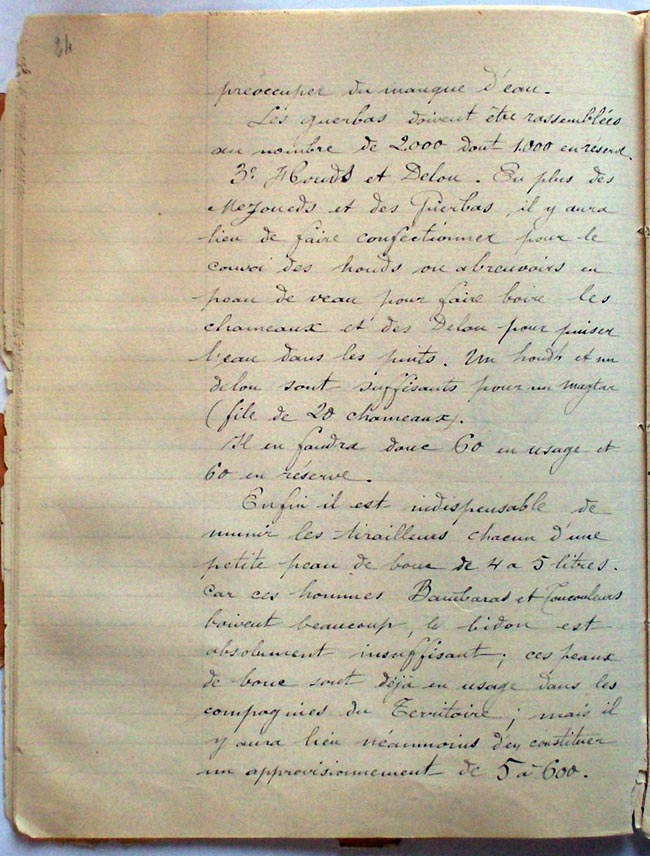 24
préoccuper du manque d'eau.
Les guerbas doivent être rassemblées
au nombre de 2.000 dont 1.000 en réserve.
3° Houds et Delou. En plus des
Mezoueds et des Guerbas, il y aura
lieu de faire confectionner pour le
convoi des houds ou abreuvoirs en
peau de veau pour faire boire les
chameaux et des Delou pour puiser
l'eau dans les puits. Un houd et un
delou sont suffisants pour un magtar
(file de 20 chameaux).
Il en faudra donc 60 en usage et
60 en réserve.
Enfin il est indispensable de
munir les tirailleurs chacun d'une
petite peau de bouc de 4 a 5 litres.
Car ces hommes Bambaras et Toucouleurs
boivent beaucoup, le bidon est
absolument insuffisant; ces peaux
de bouc sont déjà en usage dans les
compagnies du Territoire; mais il
y aura lieu néanmoins d'en constituer
un approvisionnement de 5 à 600.